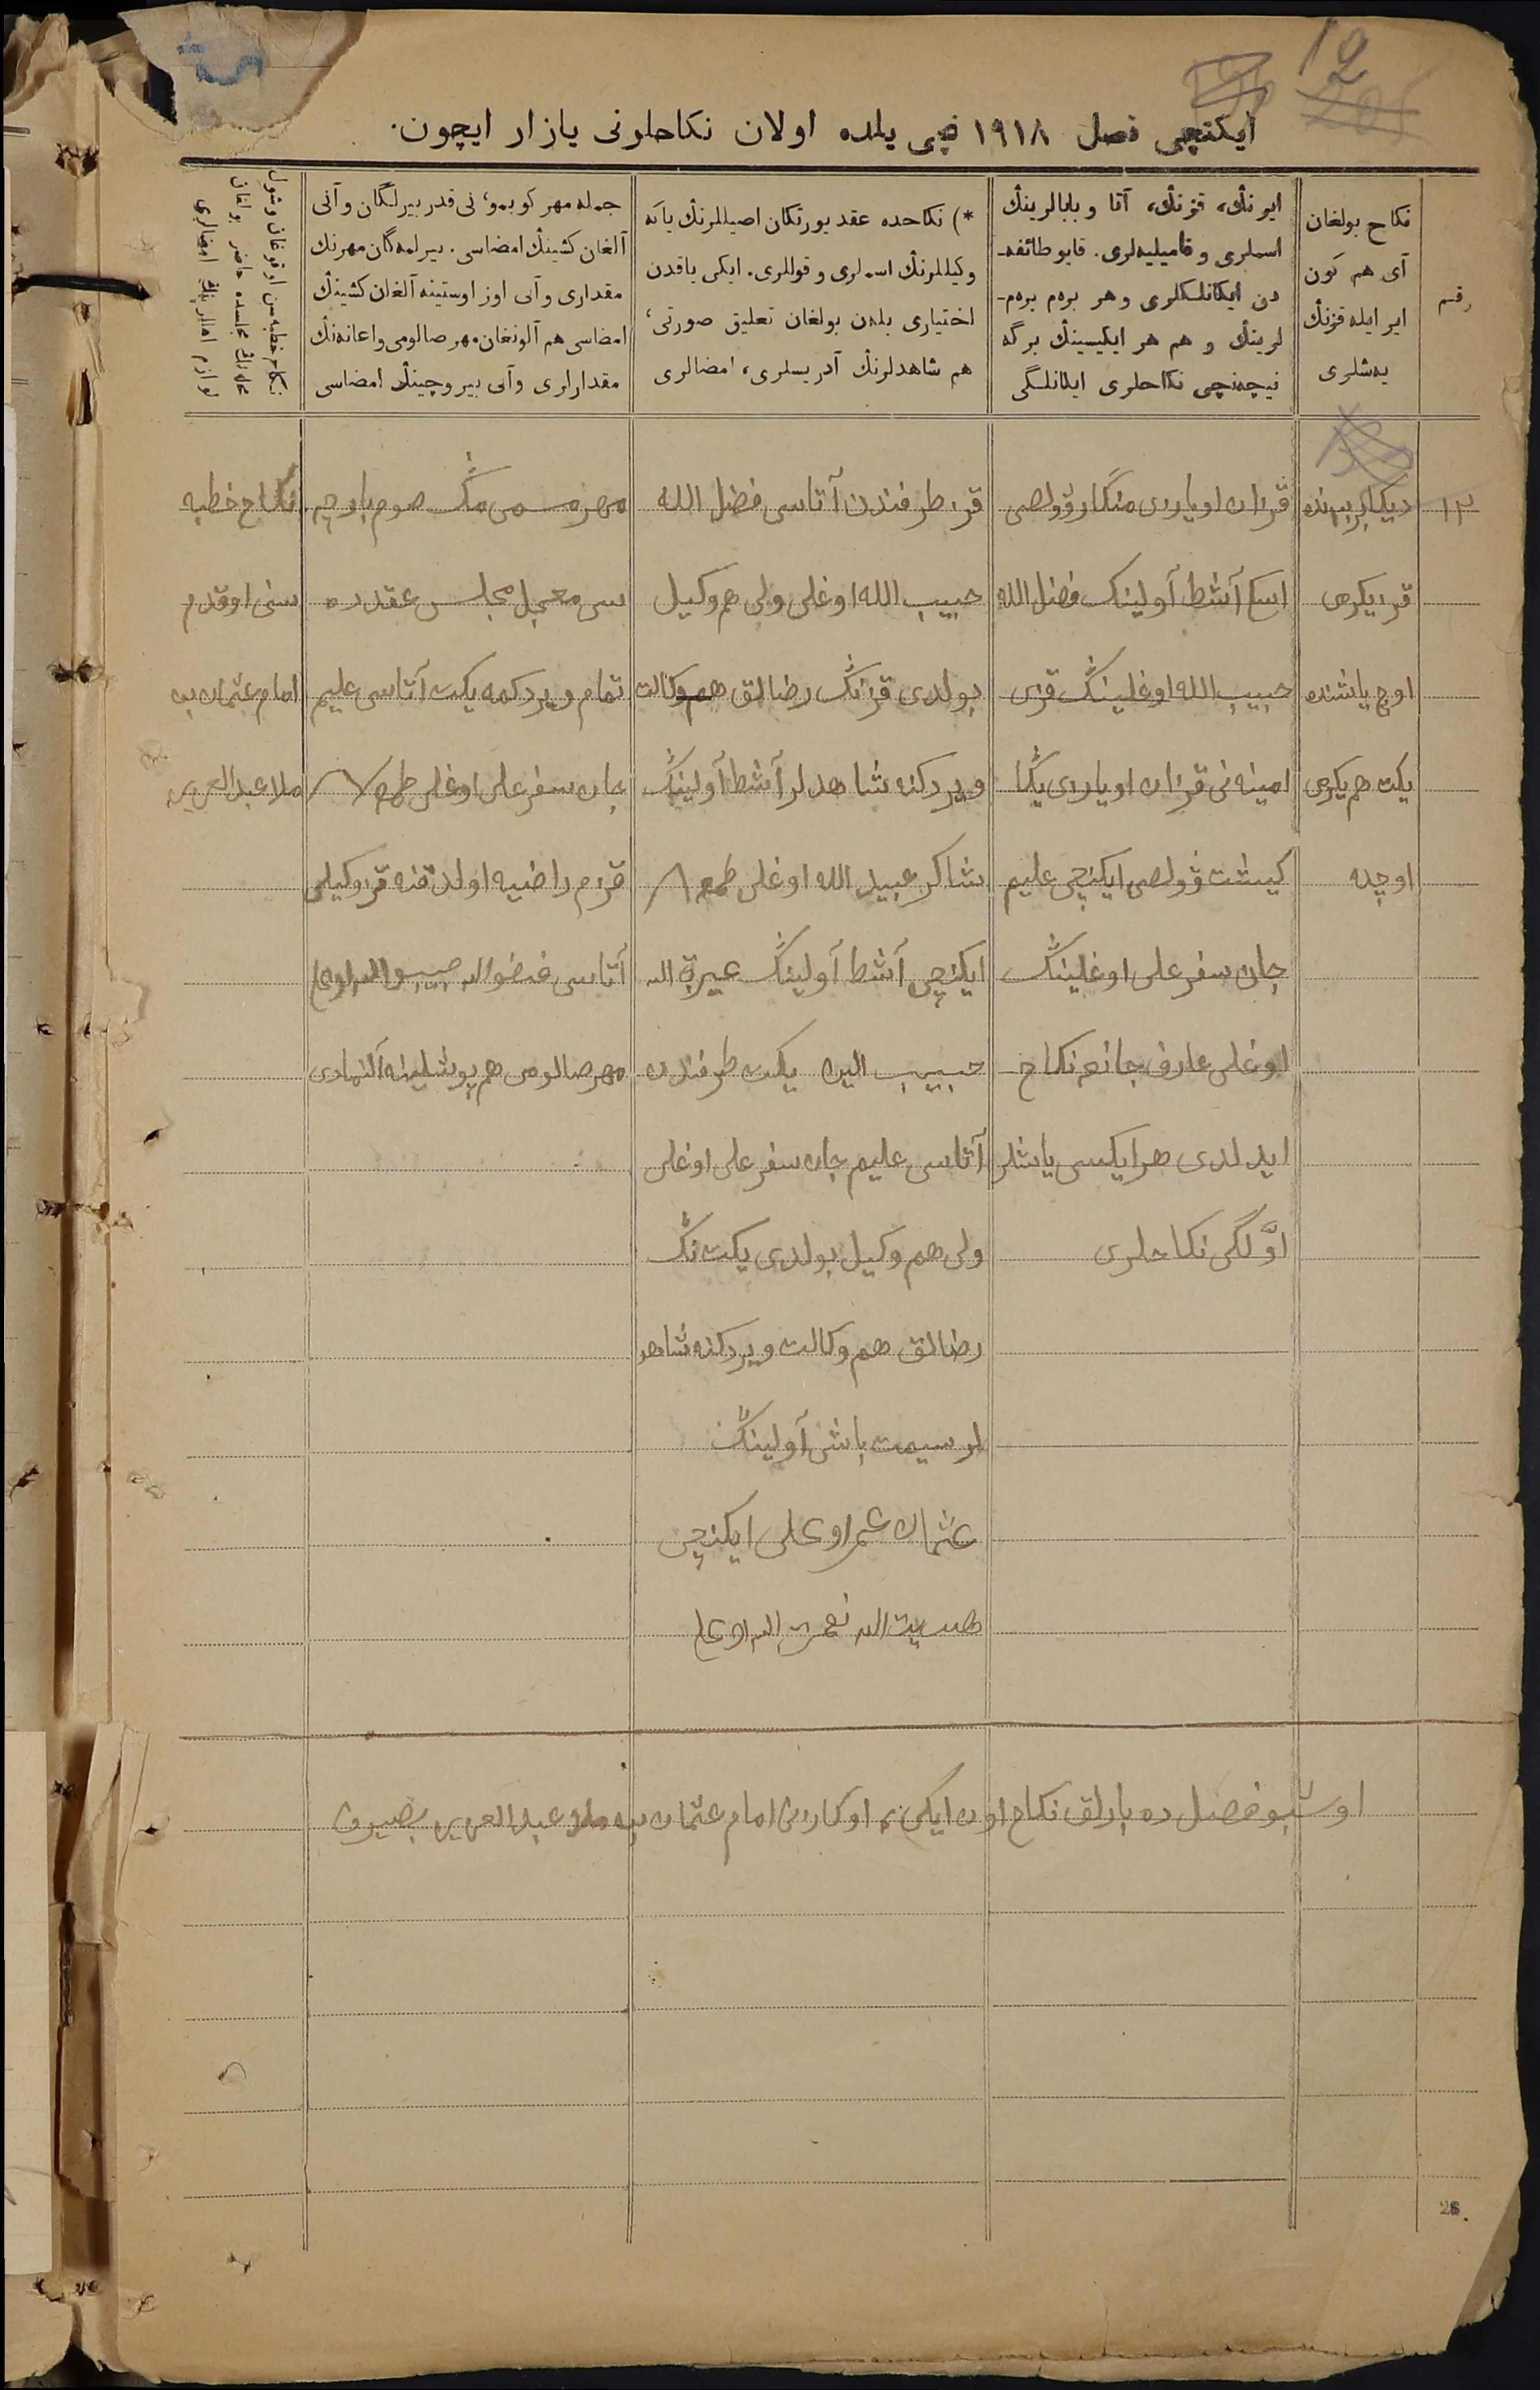 12
ایکنچی فصل ۱۹۱۸ نچی یلده اولان نکاحلرنی یازار ایچون.
رقم
نکاح بولغان
آی هم کون
ایر ایله قزنڭ
یه‌شلری
ایرنڭ، قزنڭ، آتا و بابالرینڭ
اسملری و فامیلیه‌لری. قایو طائفه‌-
دن ایکانلکلری و هر برم برم-
لرینڭ و هم هر ایکیسینڭ برگه
نیچه‌نچی نکاحلری ایکانلگی
*) نکاحده عقد یورتکان اصیللرنڭ یاکه
وکیللرنڭ اسملری و قوللری. ایکی یاقدن
اختیاری بلدن بولغان تعلیق صورتی،
هم شاهدلرنڭ آدریسلری، امضالری
جمله مهر کوبمو، نی قدر بیرلگان و آنی
آلغان کشینڭ امضاسی. بیرلمه‌گان مهرنڭ
مقداری و آنی اوز اوستینه آلغان کشینڭ
امضاسی هم آلونغان مهر صالومی و اعانه‌نڭ
مقدارلری و آنی بیروچینڭ امضاسی
نکاح خطبه‌سن اوقوغان وشول
۱۲
دیکابر
قز یکرمی
اوچ یاشنده
یکت هم یکرمی
اوچده
قزان اویازی منگار وولصی
اسکی آشط آولینڭ فضل الله
حبیب الله اوغلینڭ قزی
امینه نی قزان اویازی یڭا
کیشت وولصی ایکنچی علیم
جان سفر علی اوغلینڭ
اوغلی عارف جانغه نکاح
ایدلدی هر ایکسی یاشلر
اوّلگی نکاحلری
قز طرفندن آتاسی فضل الله
حبیب الله اوغلی ولی هم وکیل
بولدی قزنڭ رضالق هم وکالت
ویردکنه شاهدلر آشط آولینڭ
شاکر عبید الله اوغلی طمغه
ایکنچی آشط آولینڭ
حبیب الین یکت طرفندن
آتاسی علیم جان سفر علی اوغلی
ولی هم وکیل بولدی یکت نڭ
رضالق هم وکالت ویردکنه شاهد
لر سیمت باش آولینڭ
عثمان عمر اوغلی ایکنچی
مهر مسمی مڭ صوم بارچه
سی معجل مجلس عقدده
تمام ویردکمه یکت آتاسی علیم
جان سفر علی اوغلی طمغه
قزم راضیه اولدقنه قز وکیلی
آتاسی فضل الله حبیب الله اوغلی
مهر صالومی هم پوشلینه آلنمادی
نکاح خطبه
سنی اوقدم
امام عثمان بن
ملا عبدالعزیز
اوشبو فصل ده بارلق نکاح اون ایکی امام عثمان بن ملا عبدالعزیز
28.